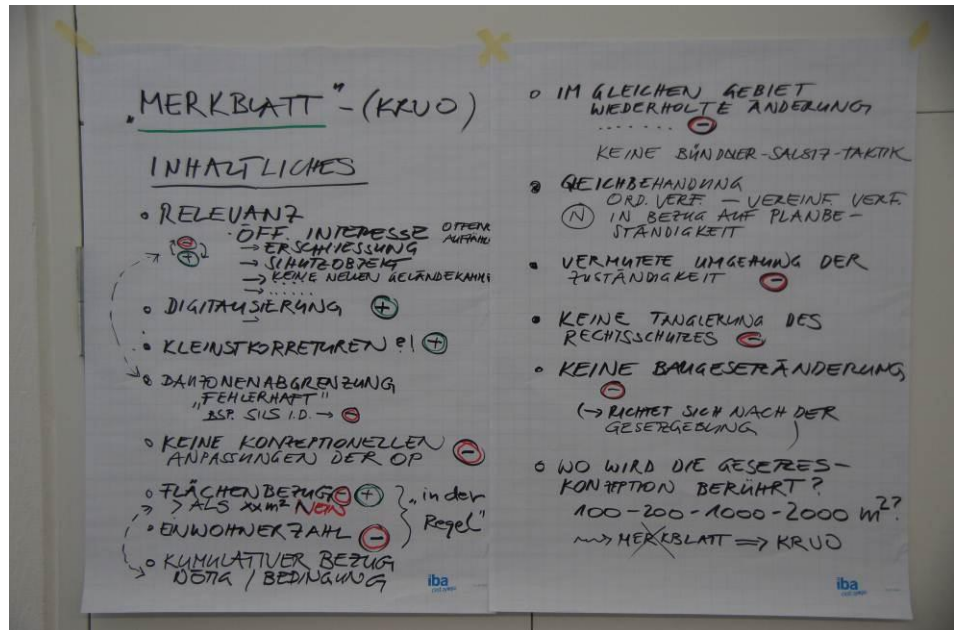 „MERKBLATT"-(KRVO)
INHALTLICHES
• RELEVANZ
· ÖFF. INTERESSE
→ ERSCHLIESSUNG
→ SCHUTZOBJEKT
→ KEINE NEUEN GELÄNDEKAMME
→ .....
• DIGITALISIERUNG +
→
• KLEINSTKORRETUREN ?! +
• BAUZONENABGRENZUNG
„FEHLERHAFT"
BSP. SILS I.D. → -
• KEINE KONZEPTIONELLEN -
ANPASSUNGEN DER OP
• FLÄCHENBEZUG - +
> ALS xxm² NEIN
„in der
Regel"
• EINWOHNERZAHL -
• KUMULATIVER BEZUG
NÖTIG / BEDINGUNG
iba
• IM GLEICHEN GEBIET
WIEDERHOLTE ÄNDERUNG
....... -
KEINE BÜNDNER-SALSIZ-TAKTIK
• GLEICHBEHANDUNG
ORD. VERF. — VEREINF. VERF.
N IN BEZUG AUF PLANBE-
STÄNDIGKEIT
• VERMUTETE UMGEHUNG DER
ZUSTÄNDIGKEIT -
• KEINE TANGIERUNG DES
RECHTSSCHUTZES -
• KEINE BAUGESETZÄNDERUNG
-
(→ RICHTET SICH NACH DER
GESETZGEBUNG )
• WO WIRD DIE GESETZES-
KONZEPTION BERÜHRT?
100-200-1000-2000 m²?
~~> MERKBLATT => KRVO
iba